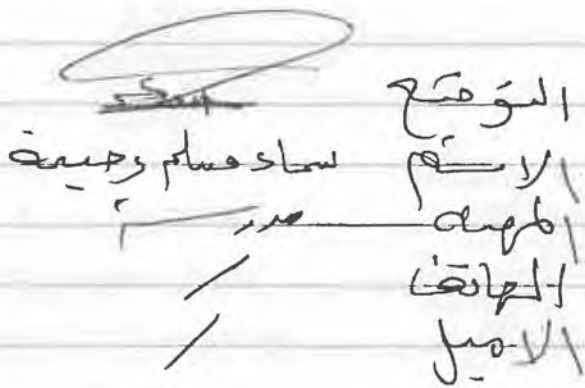 التوقيع
الاسم سماد مسلم
المهنة مدير
الهاتف /
الاميل /